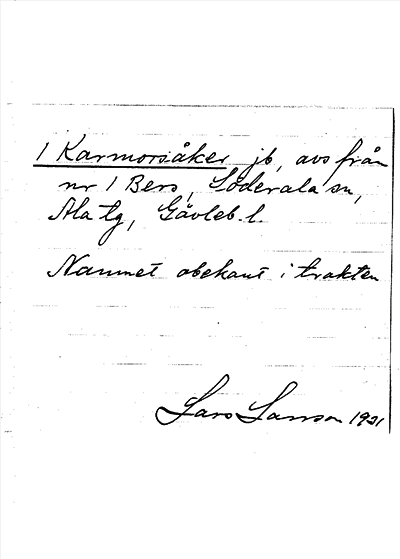 1 Karmorsåker jb, avs från
nr 1 Berg, Söderala sn,
Ala tg, Gävleb. l.
Namnet obekant i trakten
Lars Larsson 1931